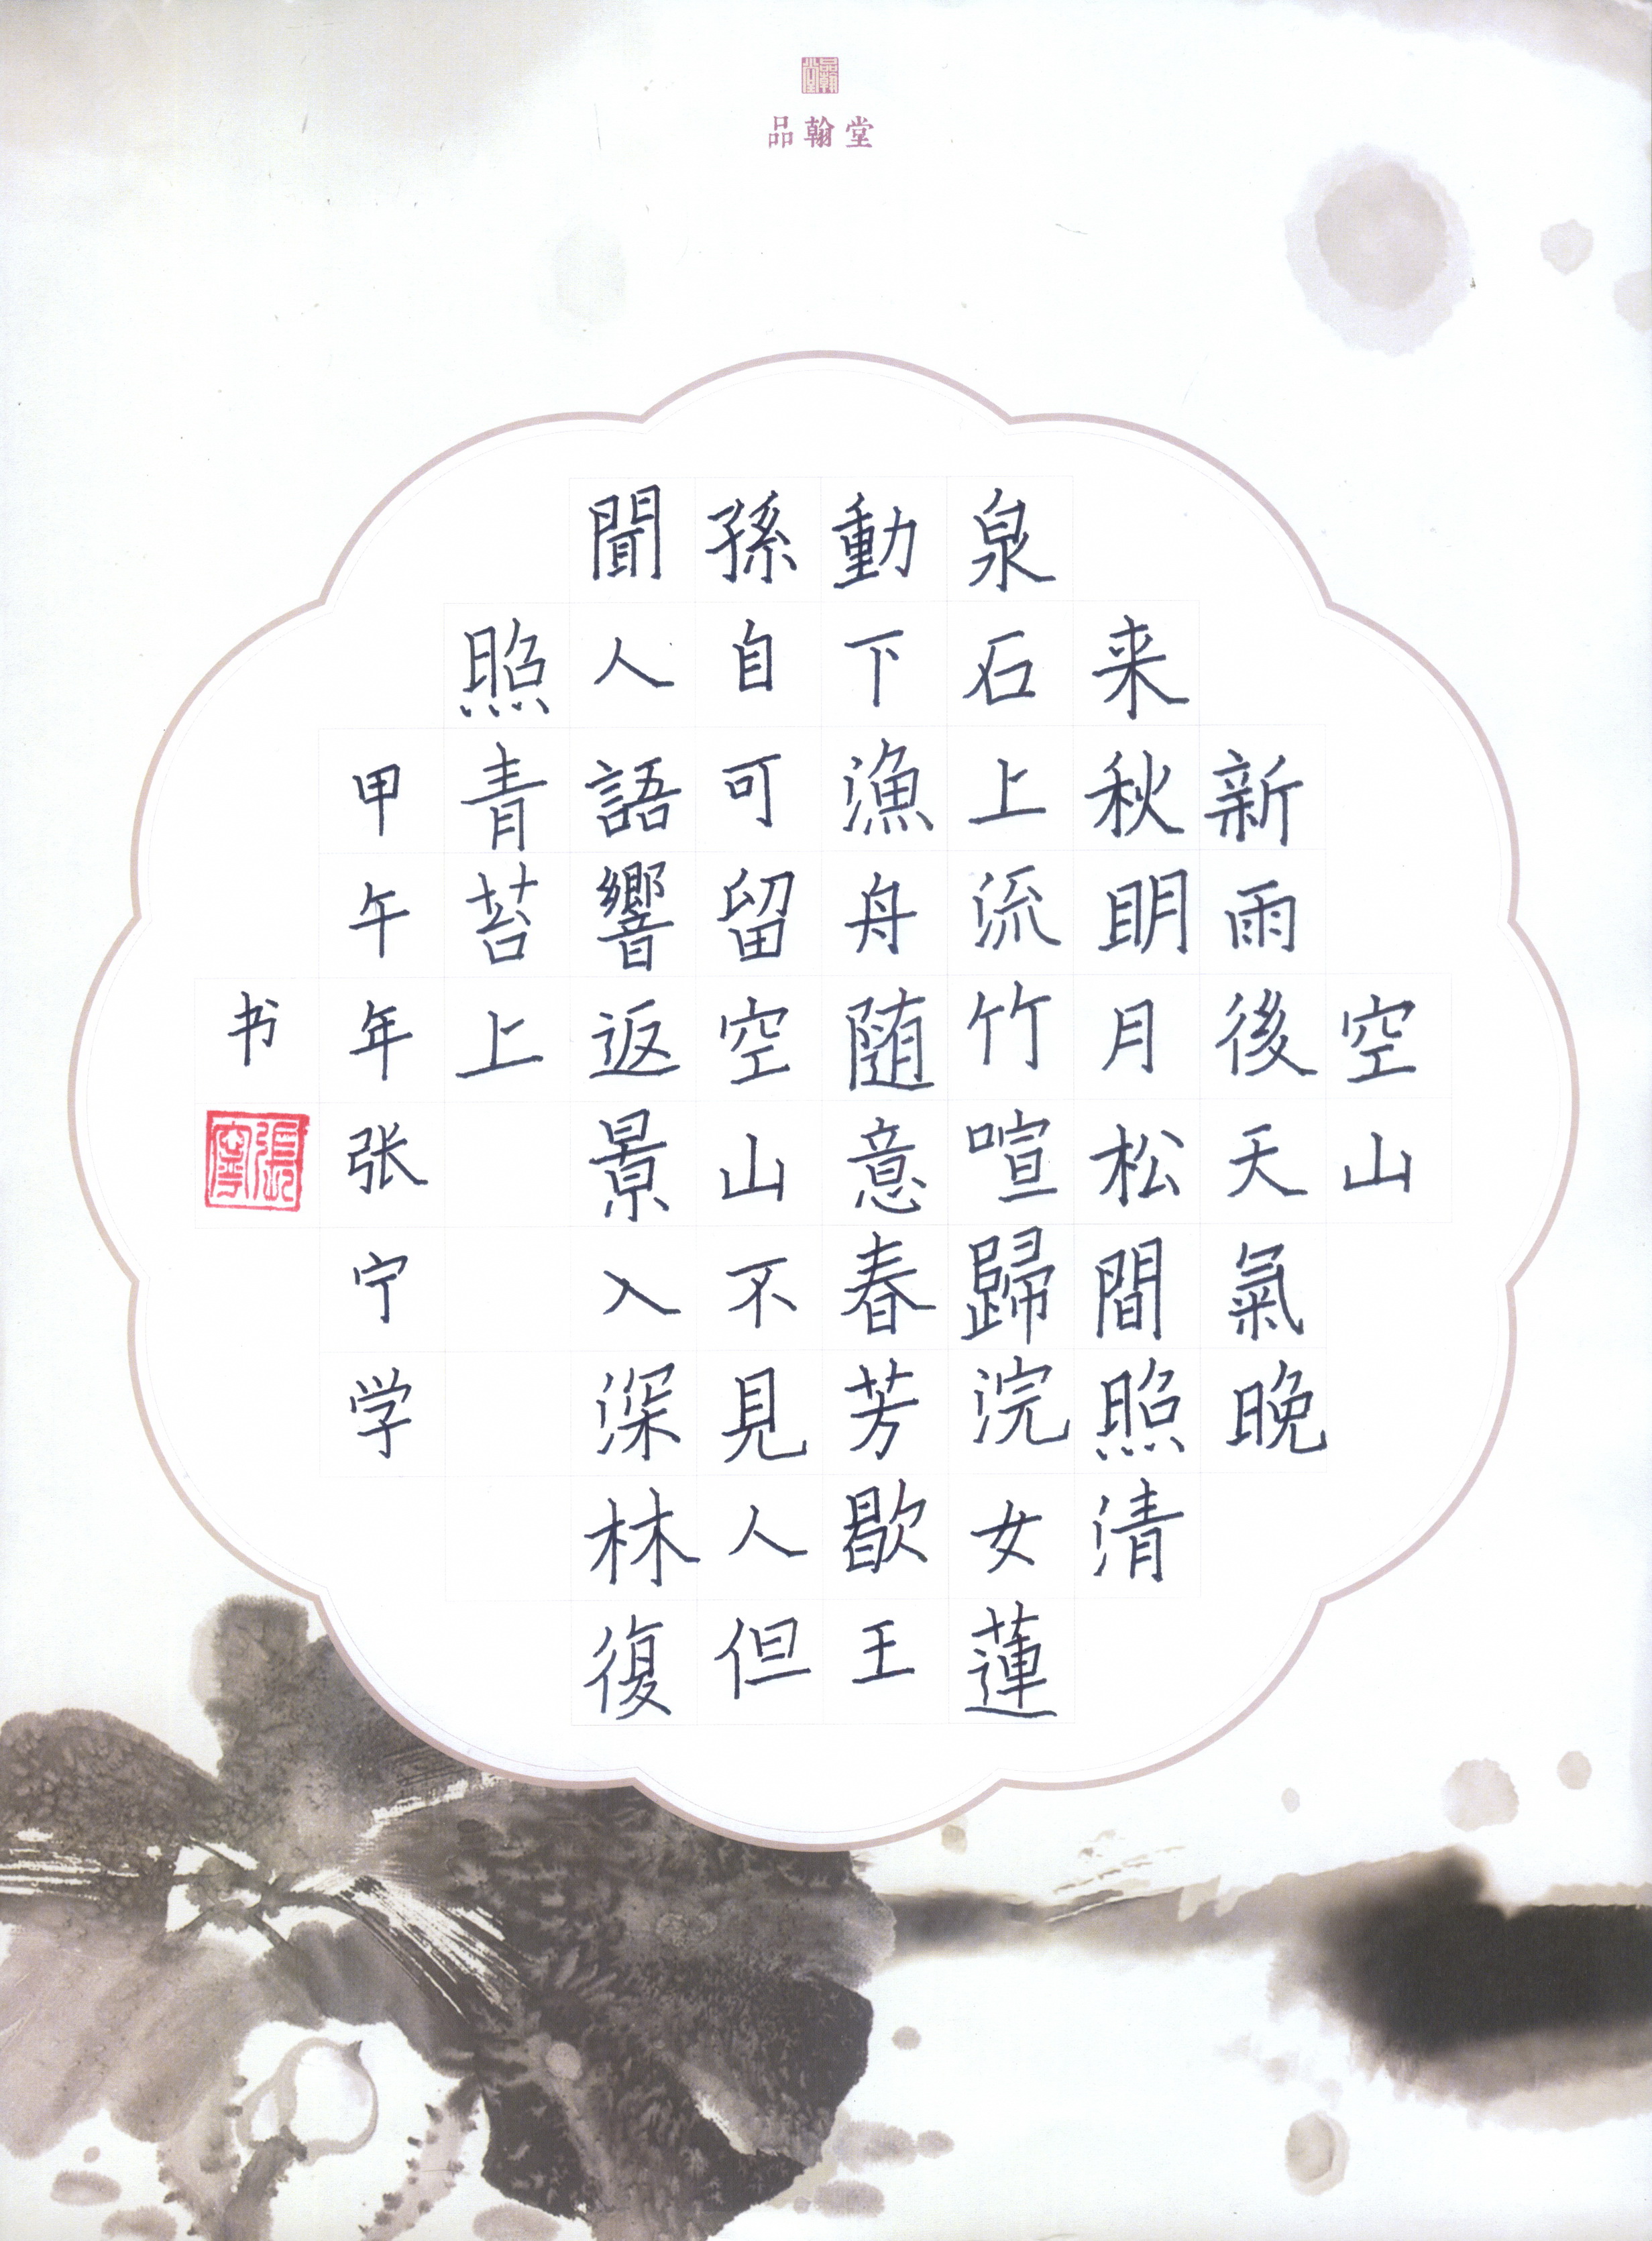 品翰堂
空山
新雨後天氣晚
来秋明月松間照清
泉石上流竹喧歸浣女蓮
動下漁舟随意春芳歇王
孫自可留空山不見人但
聞人語響返景入深林復
照青苔上
甲午年张宁学
书
張寧